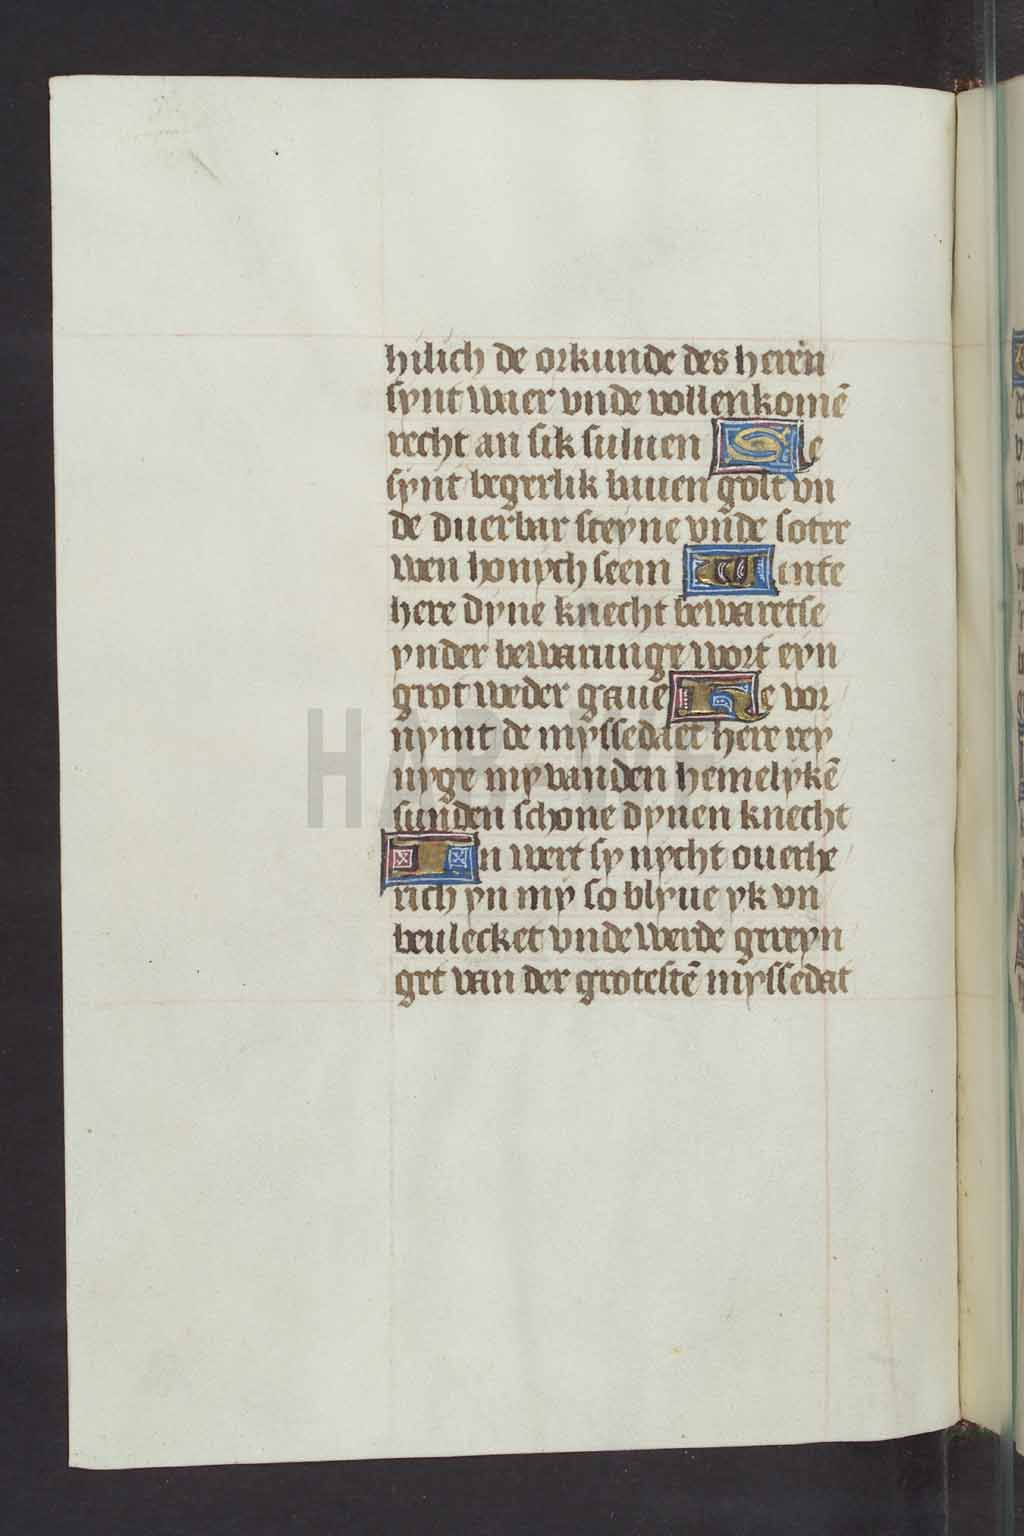 hilich de orkunde des heren
synt waer vnde vollenkomē
recht an sik suluen Se
synt begerlik bauen golt vn
de duerbar steyne vnde soter
wen honych seem Wente
here dyne knecht bewaretse
ynder bewarunge wort eyn
grot weder gaue He vor
nymt de myssedaet here rey
nyge my van den hemelykē
sunden schone dynen knecht
In wert sy nycht ouerhe
rich yn my so blyue yk vn
beulecket vnde werde gereyn
get van der grotestē myssedat
HAB